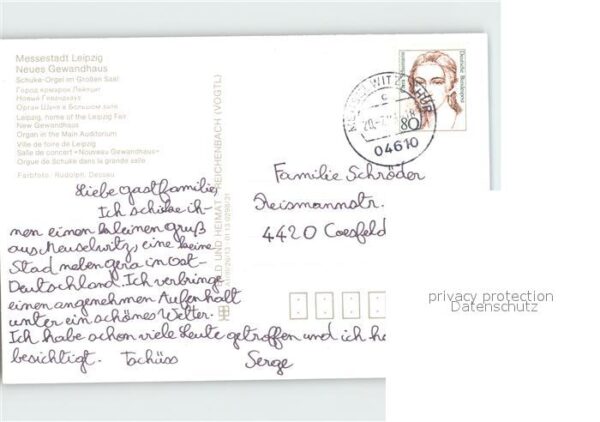 Messestadt Leipzig
Neues Gewandhaus
Schuke-Orgel im Großen Saal
Город ярмарок Лейпциг
Новый Гевандхауз
Орган Шуке в Большом зале
Leipzig, home of the Leipzig Fair
New Gewandhaus
Organ in the Main Auditorium
Ville de foire de Leipzig
Salle de concert «Nouveau Gewandhaus»
Orgue de Schuke dans la grande salle
Farbfoto: Rudolph, Dessau
BILD UND HEIMAT REICHENBACH (VOGTL)
Deutsche Bundespost
80
04610
Liebe Gastfamilie,
Ich schicke ih-
nen einen kleinen gruß
aus Meuselwitz, eine kleine
Stad neben gera in Ost-
Deutschland. Ich verbringe
einen angenehmen Aufenhalt
unter ein schönes Wetter.
Ich habe schon viele Leute getroffen und ich ha
besichtigt. Tschüss Serge
Familie Schröder
Reismannstr.
4420 Coesfeld
privacy protection
Datenschutz